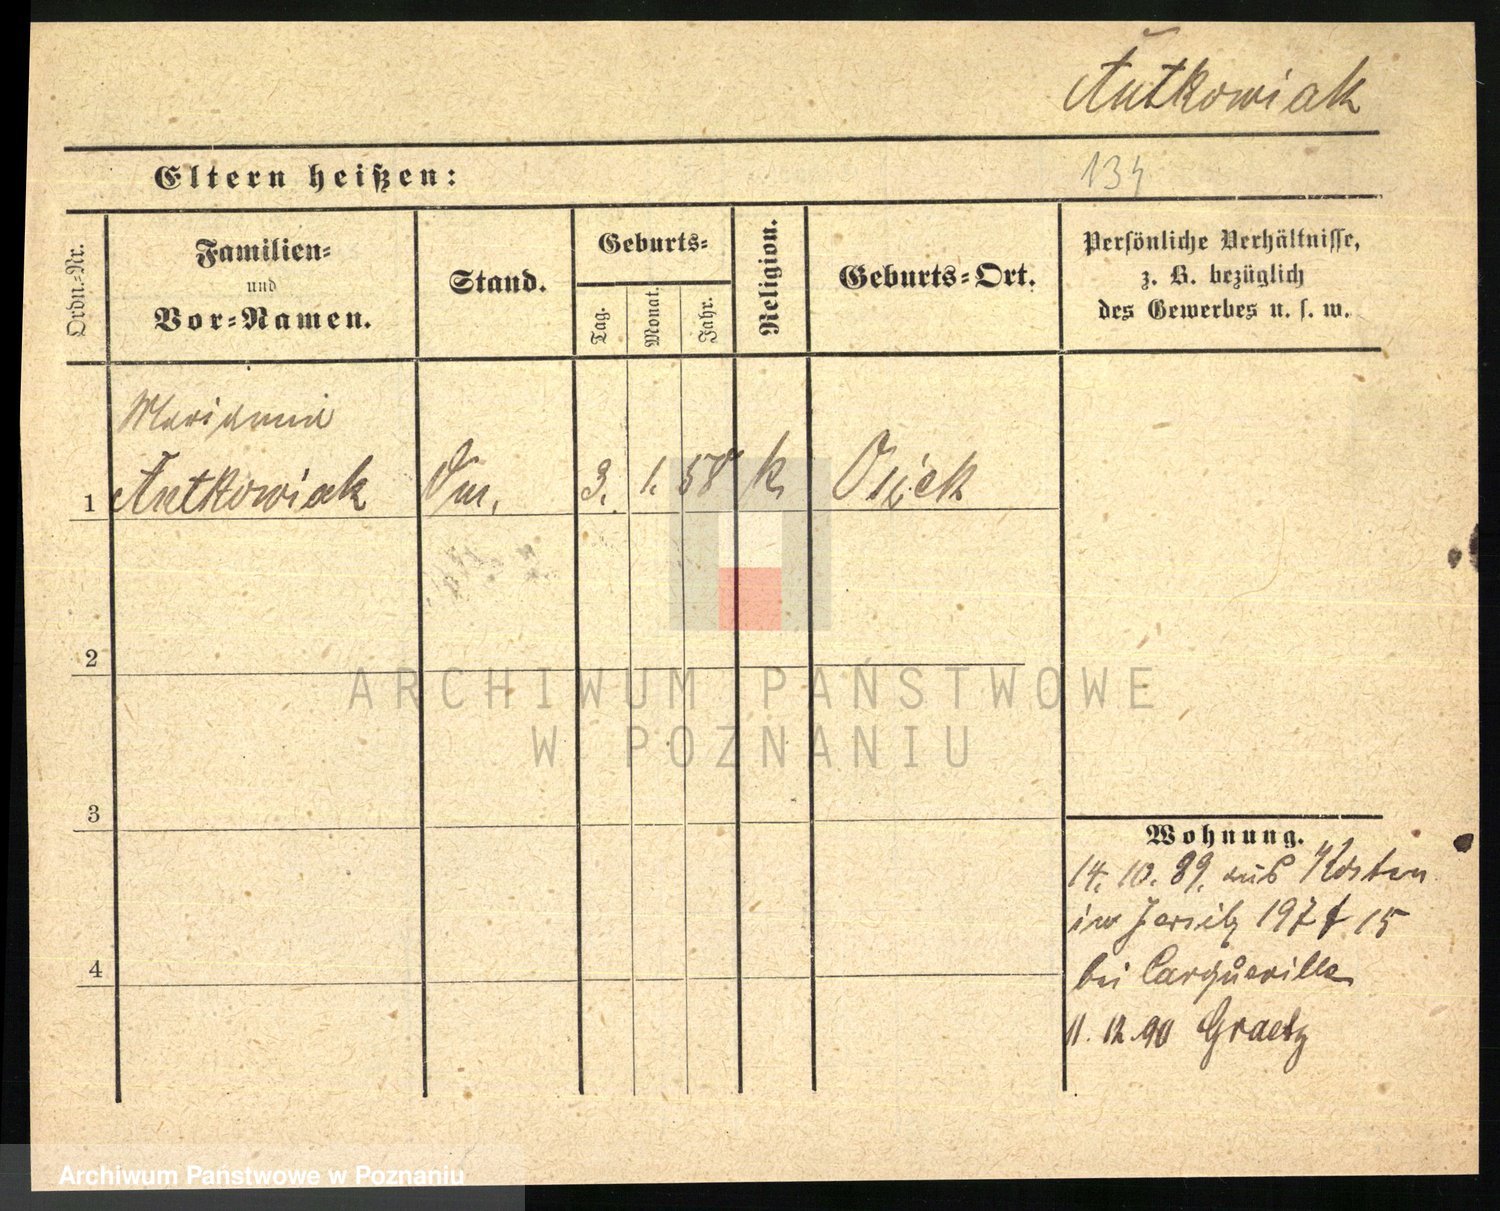 Antkowiak
Eltern heißen:
134
Ordn.-Nr.
Familien-
und
Vor-Namen.
Stand.
Geburts-
Tag.
Monat.
Jahr.
Religion.
Geburts-Ort.
Persönliche Verhältnisse,
z. B. bezüglich
des Gewerbes u. s. w.
Marianna
1 Antkowiak 3. 1. 58 k. Osiek
2
3
4
Wohnung.
14. 10. 89. aus Kosten
in Jersitz 197 15
bei
11. 12. 90 Graetz
ARCHIWUM PAŃSTWOWE
W POZNANIU
Archiwum Państwowe w Poznaniu